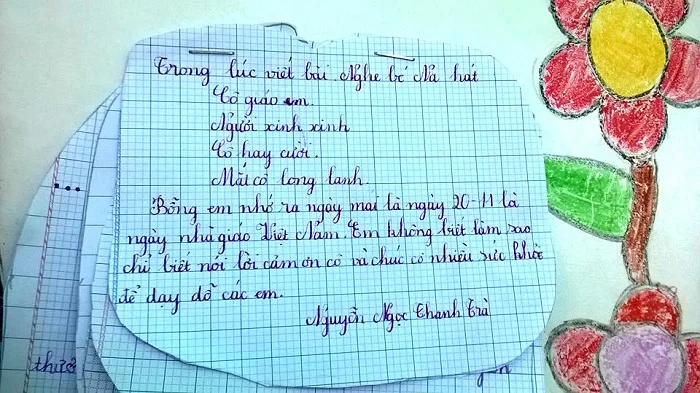 Trong lúc viết bài Nghe bé Na hát
Cô giáo em.
Người xinh xinh
Cô hay cười.
Mắt cô long lanh.
Bỗng em nhớ ra ngày mai là ngày 20-11 là
ngày nhà giáo Việt Nam. Em không biết làm sao
chỉ biết nói lời cảm ơn cô và chúc cô nhiều sức khỏe
để dạy dỗ các em.
Nguyễn Ngọc Thanh Trà